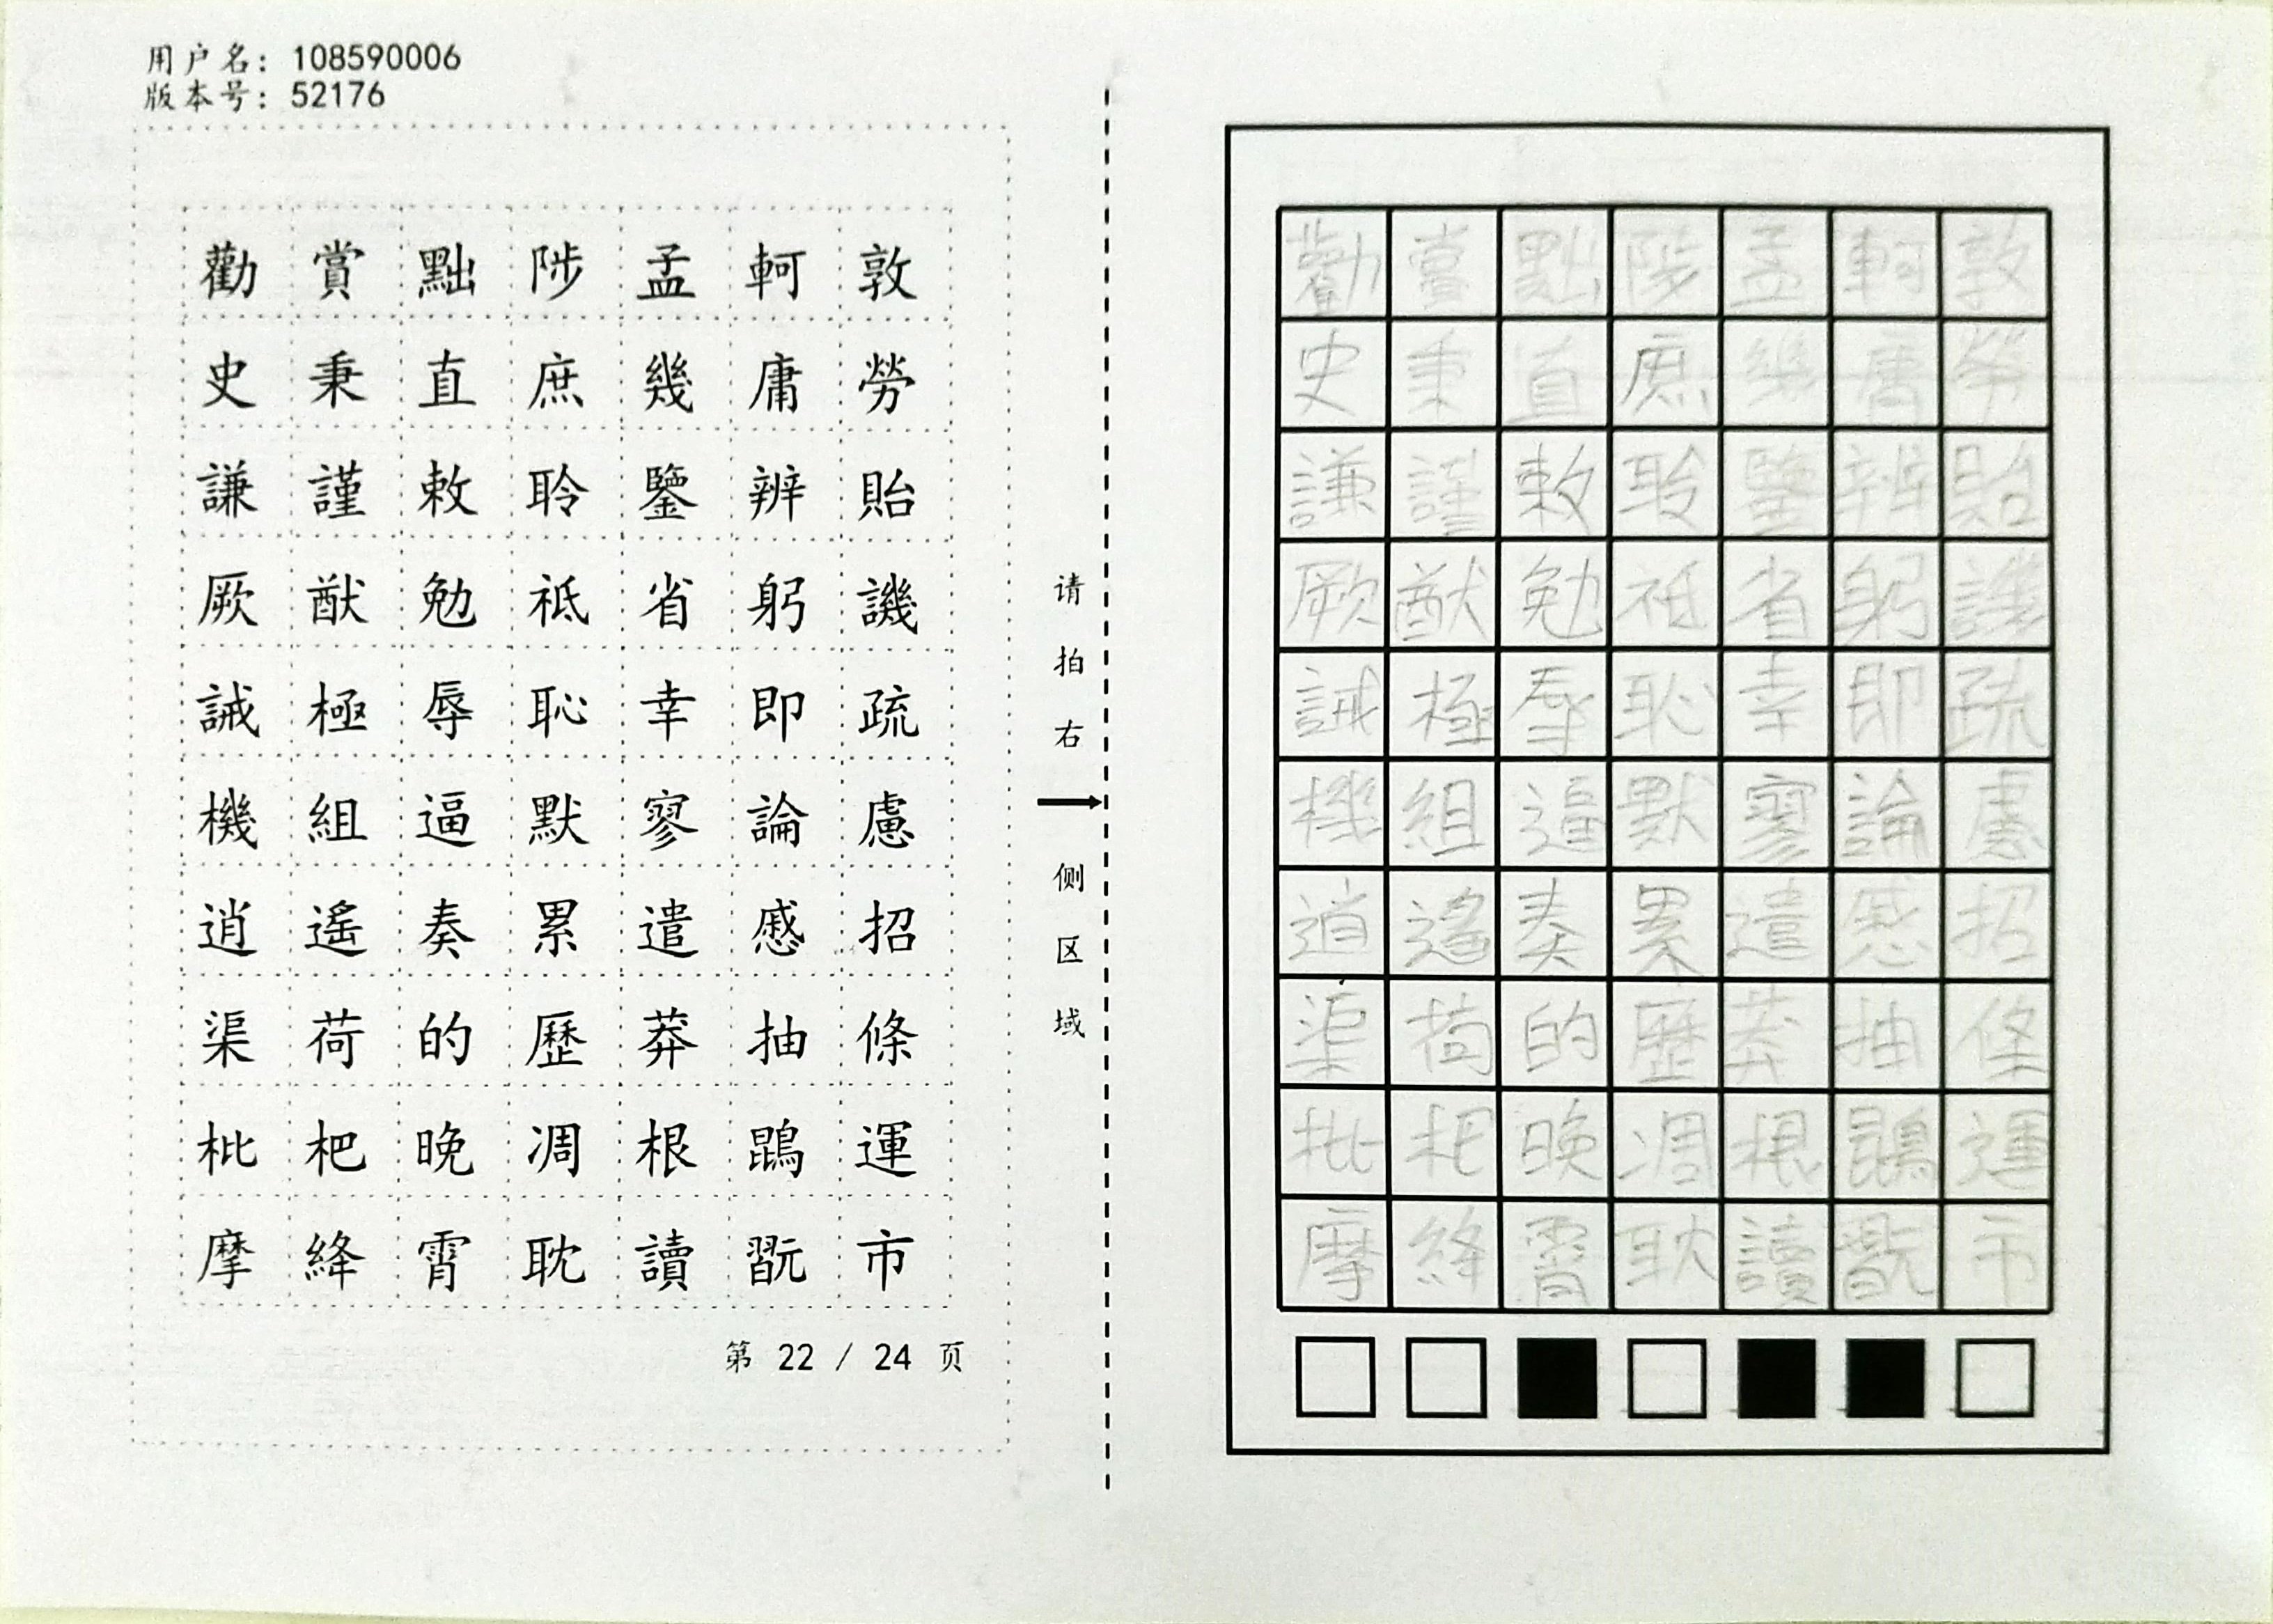 用户名: 108590006
版本号: 52176
勸賞黜陟孟軻敦
史秉直庶幾庸勞
謙謹敕聆鑒辨貽
厥猷勉祗省躬譏
誡極辱恥幸即疏
機組逼默寥論慮
逍遙奏累遣慼招
渠荷的歷莽抽條
枇杷晚凋根鵾運
摩絳霄耽讀翫市
第 22 / 24 页
请拍右侧区域
勸賞黜陟孟軻敦
史秉直庶幾庸勞
謙謹敕聆鑒辨貽
厥猷勉祗省躬譏
誡極辱恥幸即疏
機組逼默寥論慮
逍遙奏累遣慼招
渠荷的歷莽抽條
枇杷晚凋根鵾運
摩絳霄耽讀翫市